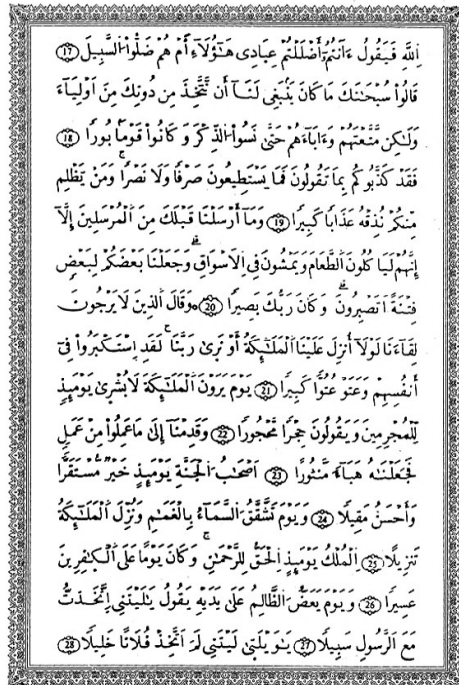 اِ۬للَّهِ فَيَقُولُ ءَآنتُمُۥٓ أَضْلَلْتُمْ عِبَادِى هَٰٓؤُلَآءِ أَمْ هُمْ ضَلُّوا۟ اُ۬لسَّبِيلَ 17
قَالُوا۟ سُبْحَٰنَكَ مَا كَانَ يَنۢبَغِى لَنَآ أَن نَّتَّخِذَ مِن دُونِكَ مِنَ اَوْلِيَآءَ
وَلَٰكِن مَّتَّعْتَهُمْ وَءَابَآءَهُمْ حَتَّىٰ نَسُوا۟ اُ۬لذِّكْرَ وَكَانُوا۟ قَوْمًۢا بُورًا 18
فَقَدْ كَذَّبُوكُم بِمَا تَقُولُونَ فَمَا يَسْتَطِيعُونَ صَرْفًا وَلَا نَصْرًا وَمَنْ يَّظْلِم
مِّنكُمْ نُذِقْهُ عَذَابًا كَبِيرًا 19 وَمَآ أَرْسَلْنَا قَبْلَكَ مِنَ اَ۬لْمُرْسَلِينَ إِلَّآ
إِنَّهُمْ لَيَاكُلُونَ اَ۬لطَّعَامَ وَيَمْشُونَ فِى اِ۬لَاسْوَاقِ وَجَعَلْنَا بَعْضَكُمْ لِبَعْضٍ
فِتْنَةً اَتَصْبِرُونَ وَكَانَ رَبُّكَ بَصِيرًا 20 وَقَالَ اَ۬لذِينَ لَا يَرْجُونَ
لِقَآءَنَا لَوْلَآ أُنزِلَ عَلَيْنَا اَ۬لْمَلَٰٓئِكَةُ أَوْ نَرَىٰ رَبَّنَا لَقَدِ اِ۪سْتَكْبَرُوا۟ فِىٓ
أَنفُسِهِمْ وَعَتَوْ عُتُوًّا كَبِيرًا 21 يَوْمَ يَرَوْنَ اَ۬لْمَلَٰٓئِكَةَ لَا بُشْرَىٰ يَوْمَئِذٍ
لِّلْمُجْرِمِينَ وَيَقُولُونَ حِجْرًا مَّحْجُورًا 22 وَقَدِمْنَآ إِلَىٰ مَا عَمِلُوا۟ مِنْ عَمَلٍ
فَجَعَلْنَٰهُ هَبَآءً مَّنثُورًا 23 اَصْحَٰبُ اُ۬لْجَنَّةِ يَوْمَئِذٍ خَيْرٌ مُّسْتَقَرًّا
وَأَحْسَنُ مَقِيلًا 24 وَيَوْمَ تَشَّقَّقُ اُ۬لسَّمَآءُ بِالْغَمَٰمِ وَنُزِّلَ اَ۬لْمَلَٰٓئِكَةُ
تَنزِيلًا 25 اِ۬لْمُلْكُ يَوْمَئِذٍ اِ۬لْحَقُّ لِلرَّحْمَٰنِ وَكَانَ يَوْمًا عَلَى اَ۬لْكٰ۪فِرِينَ
عَسِيرًا 26 وَيَوْمَ يَعَضُّ اُ۬لظَّالِمُ عَلَىٰ يَدَيْهِ يَقُولُ يَٰلَيْتَنِى اِ۪تَّخَذتُّ
مَعَ اَ۬لرَّسُولِ سَبِيلًا 27 يَٰوَيْلَتَىٰ لَيْتَنِى لَمَ اَتَّخِذْ فُلَانًا خَلِيلًا 28